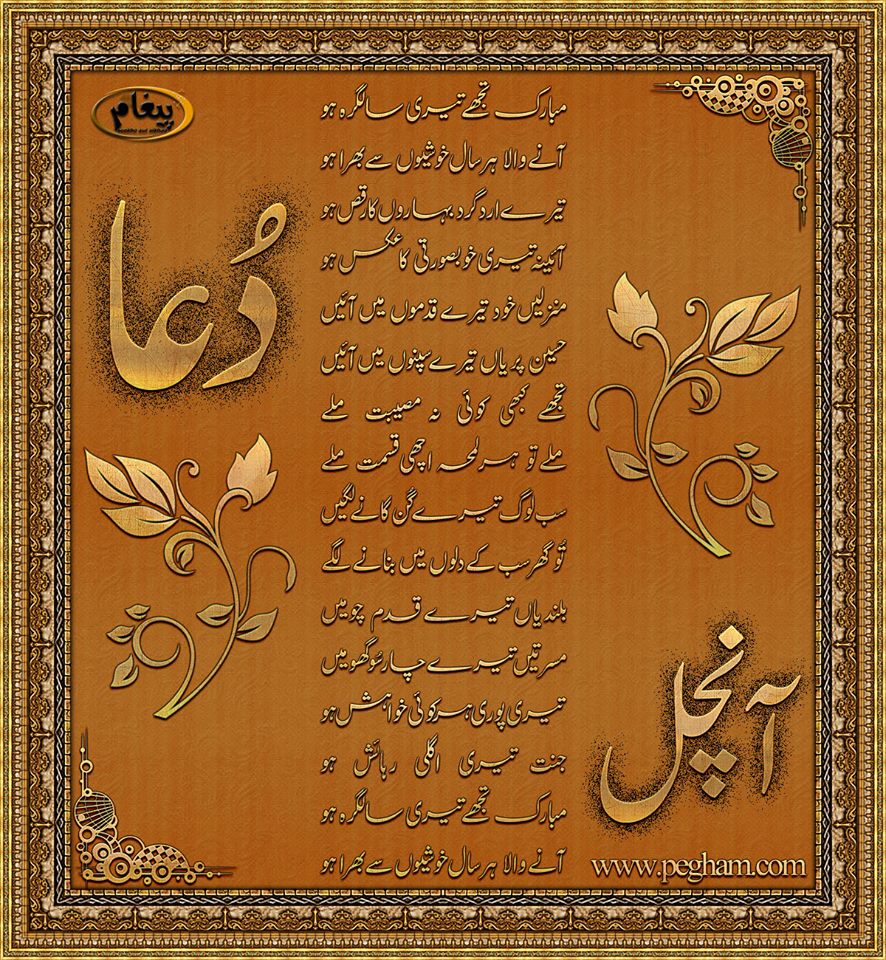 پیغام
دُعا
مبارک تجھے تیری سالگرہ ہو
آنے والا ہر سال خوشیوں سے بھرا ہو
تیرے اردگرد بہاروں کا رقص ہو
آئینہ تیری خوبصورتی کا عکس ہو
منزلیں خود تیرے قدموں میں آئیں
حسین پریاں تیرے سپنوں میں آئیں
تجھے کبھی کوئی نہ مصیبت ملے
ملے تو ہر لمحہ اچھی قسمت ملے
سب لوگ تیرے گُن گانے لگیں
تُو گھر سب کے دلوں میں بنانے لگے
بلندیاں تیرے قدم چومیں
مسرتیں تیرے چار سُو گھومیں
تیری پوری ہر کوئی خواہش ہو
جنت تیری اگلی رہائش ہو
مبارک تجھے تیری سالگرہ ہو
آنے والا ہر سال خوشیوں سے بھرا ہو
آنچل
www.pegham.com